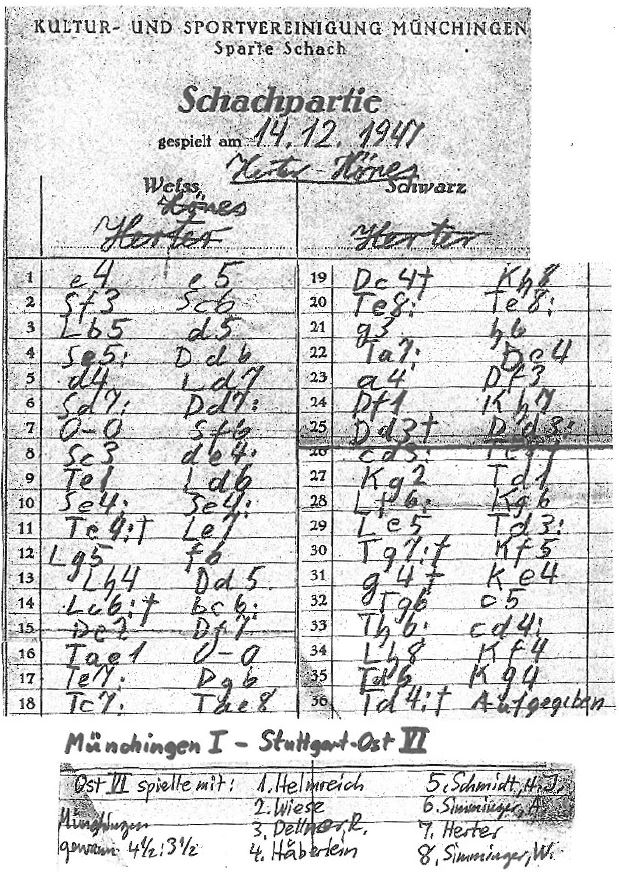 KULTUR- UND SPORTVEREINIGUNG MÜNCHINGEN
Sparte Schach
Schachpartie
gespielt am 14.12.1947
Herter - Hönes
Weiss Schwarz
Hönes
Herter Herter
1 e4 e5
2 Sf3 Sc6
3 Lb5 d5
4 Se5: Dd6
5 d4 Ld7
6 Sd7: Dd7:
7 0-0 Sf6
8 Sc3 de4:
9 Te1 Ld6
10 Se4: Se4:
11 Te4:† Le7
12 Lg5 f6
13 Lh4 Dd5
14 Lc6:† bc6:
15 De2 Df7
16 Tae1 0-0
17 Te7: Dg6
18 Tc7: Tae8
19 Dc4† Kh8
20 Te8: Te8:
21 g3 h6
22 Ta7: De4
23 a4 Df3
24 Df1 Kh7
25 Dd3† Dd3:
26 cd3:
27 Kg2 Td1
28 Lf6: Kg6
29 Le5 Td3:
30 Tg7:† Kf5
31 g4† Ke4
32 Tg6 c5
33 Th6: cd4:
34 Lh8 Kf4
35 Td6 Kg4
36 Td4:† Aufgegeben
Münchingen I - Stuttgart-Ost VI
Ost VI spielte mit: 1. Helmreich 5. Schmidt, H.J.
2. Wiese 6. Simminger, A.
Münchingen 3. Dettmer, R. 7. Herter
gewann 4½:3½ 4. Häberlein 8. Simminger, W.